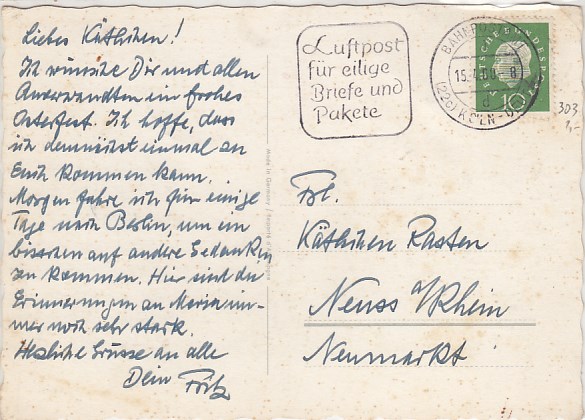 Liebes Käthchen!
Ich wünsche Dir und allen
Anverwandten ein frohes
Osterfest. Ich hoffe, dass
ich demnächst einmal an
Euch kommen kann.
Morgen fahre ich für einige
Tage nach Berlin, um ein
bisschen auf andere Gedanken
zu kommen. Hier sind die
Erinnerungen an Maria im-
mer noch sehr stark.
Herzliche Grüsse an alle
Dein Fritz
Luftpost
für eilige
Briefe und
Pakete
BAHNPOST
15.4.60-8
d
(22c) KÖLN
DEUTSCHE BUNDESPOST
10
303
Made in Germany
Frl.
Käthchen Rasten
Neuss a/Rhein
Neumarkt